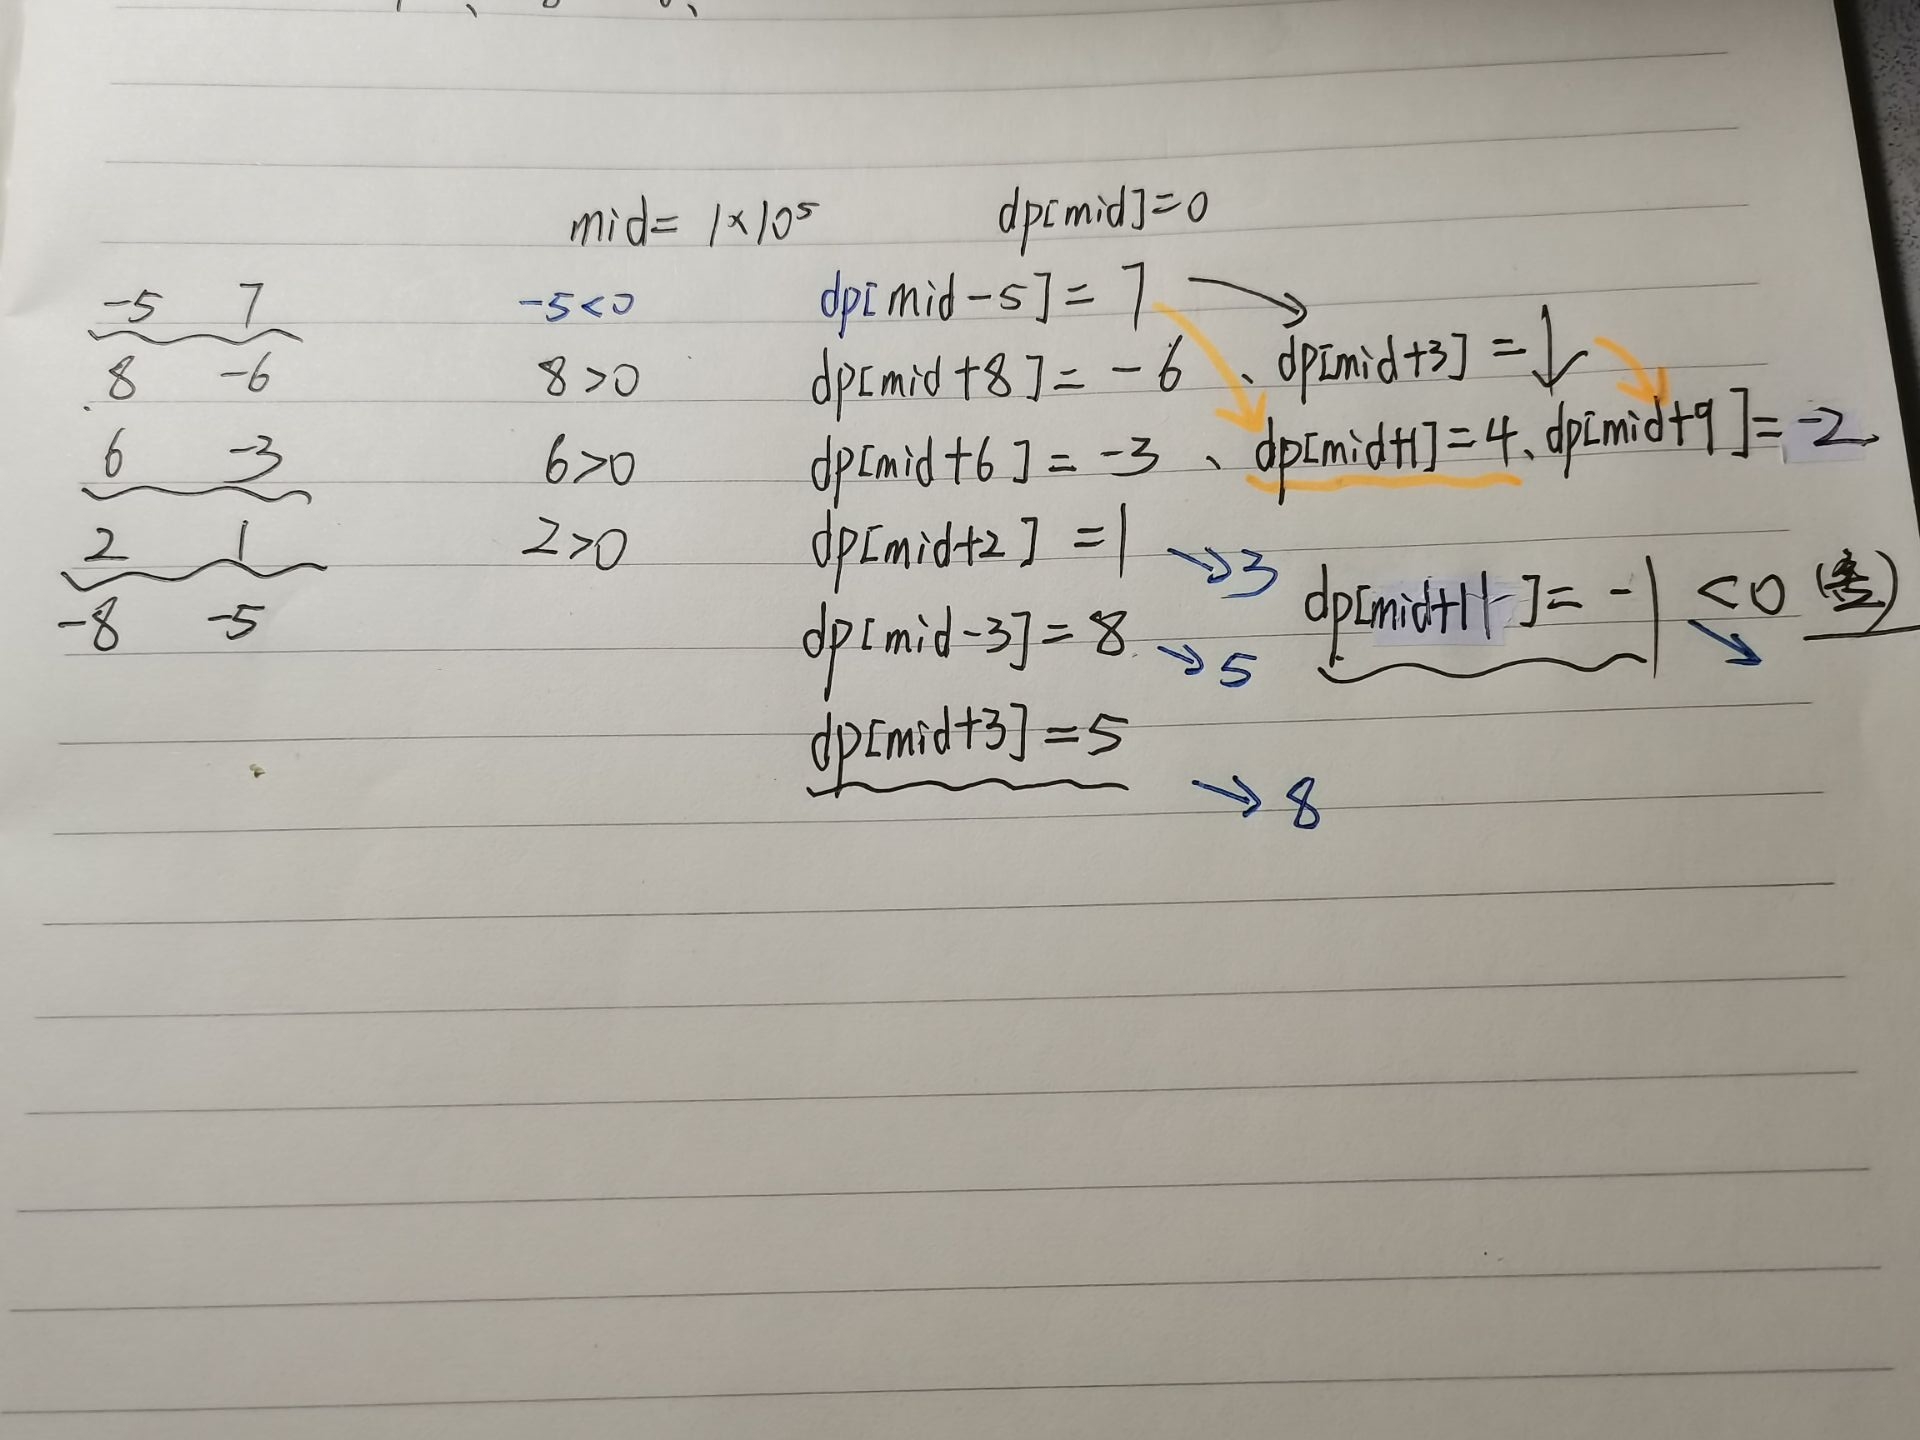 mid= 1×10⁵ dp[mid]=0
-5 7 -5<0 dp[mid-5]=7
8 -6 8>0 dp[mid+8]=-6、dp[mid+3]=1
6 -3 6>0 dp[mid+6]=-3、dp[mid+1]=4、dp[mid+9]=-2
2 1 2>0 dp[mid+2]=1 →3
dp[mid+11]=-1 <0
-8 -5 dp[mid-3]=8 →5
dp[mid+3]=5
→8